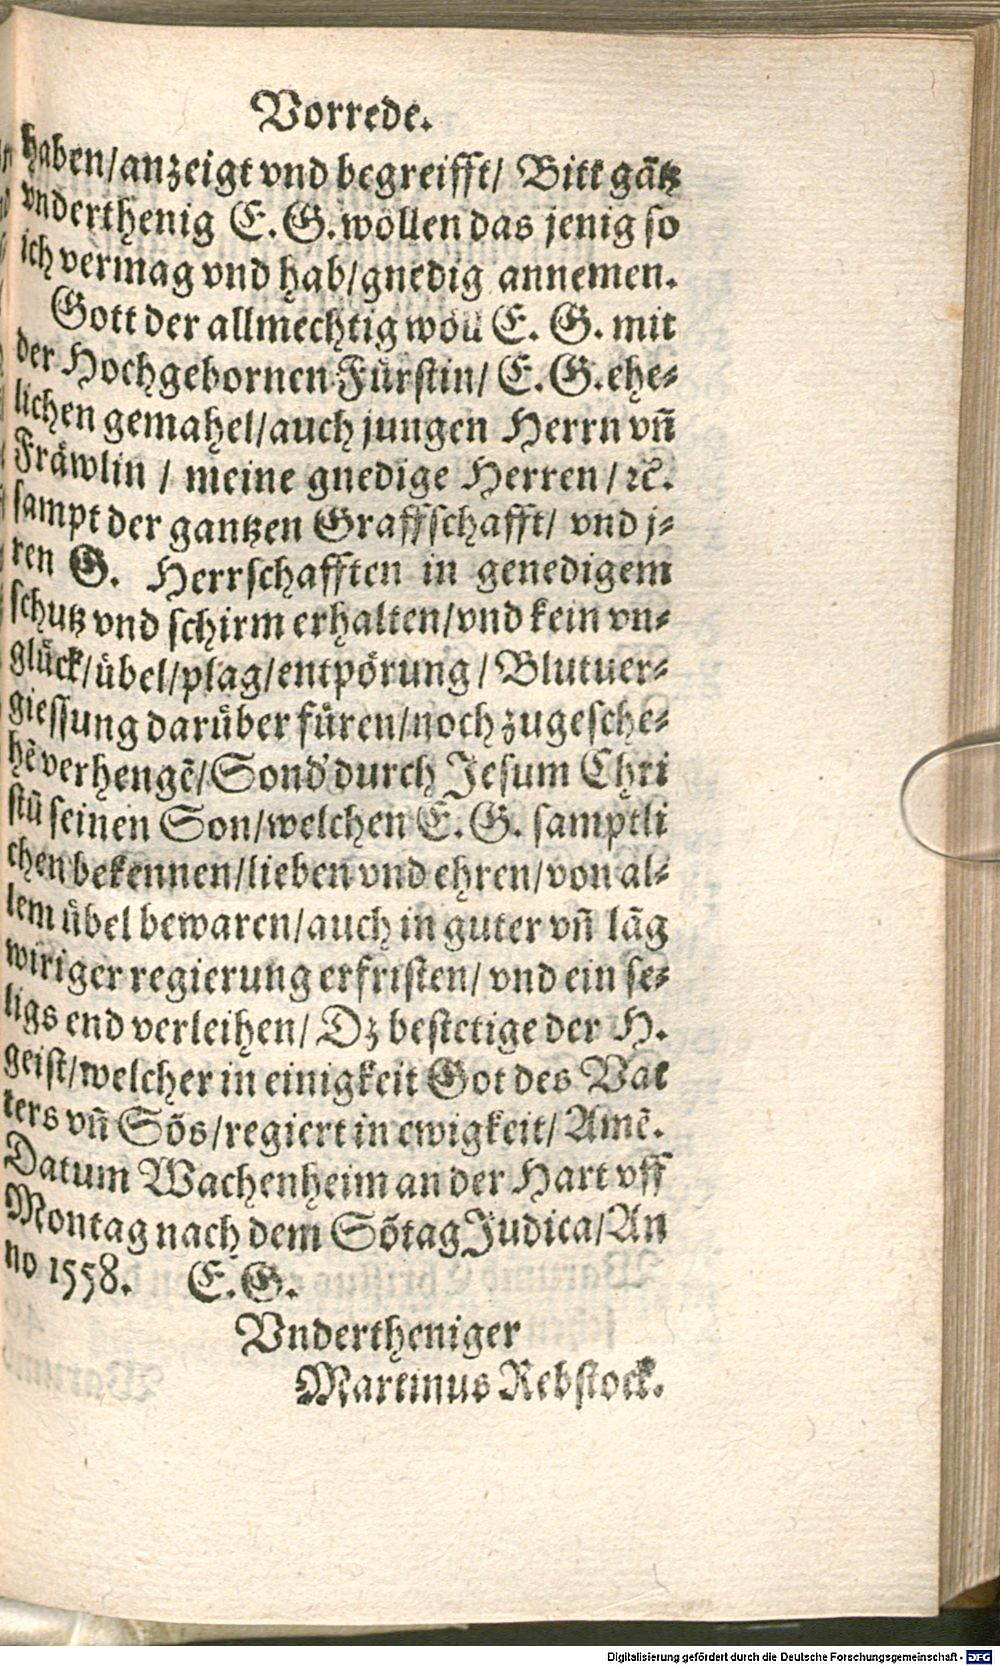 Vorrede.
haben/anzeigt vnd begreifft/ Bitt gãtz
vnderthenig E. G. wöllen das jenig so
ich vermag vnd hab/gnedig annemen.
Gott der allmechtig wöll E. G. mit
der Hochgebornen Fürstin/ E. G. ehe-
lichen gemahel/auch jungen Herrn vñ
Fräwlin / meine gnedige Herren / ꝛc.
sampt der gantzen Graffschafft/ vnd j-
ren G. Herrschafften in genedigem
schutz vnd schirm erhalten/vnd kein vn-
glück/übel/plag/entpörung/Blutuer-
giessung darüber füren/noch zugesche-
hẽ verhengẽ/Sond' durch Jesum Chri
stũ seinen Son/welchen E. G. samptli
chen bekennen/lieben vnd ehren/von al-
lem übel bewaren/auch in guter vñ lãg
wiriger regierung erfristen/ vnd ein se-
ligs end verleihen/ Dz bestetige der H.
geist/welcher in einigkeit Got des Vat
ters vñ Sõs/regiert in ewigkeit/ Amẽ.
Datum Wachenheim an der Hart vff
Montag nach dem Sõtag Judica/An
no 1558. E. G.
Vndertheniger
Martinus Rebstock.
Digitalisierung gefördert durch die Deutsche Forschungsgemeinschaft - DFG